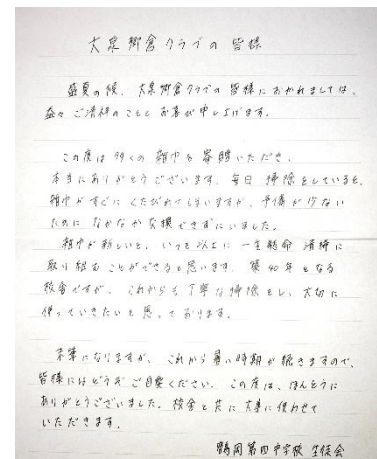 大泉郷倉クラブの皆様
盛夏の候、大泉郷倉クラブの皆様におかれましては、
益々ご清祥のこととお喜び申し上げます。
この度は多くの雑巾を寄贈いただき、
本当にありがとうございます。毎日掃除をしていると、
雑巾がすぐにくたびれてしまいますが、予備が少ない
ためになかなか交換できずにいました。
雑巾が新しいと、いつも以上に一生懸命清掃に
取り組むことができると思います。築40年となる
校舎ですが、これからも丁寧な掃除をし、大切に
使っていきたいと思っております。
末筆になりますが、これから暑い時期が続きますので、
皆様にはどうぞご自愛ください。この度は、ほんとうに
ありがとうございました。校舎と共に大事に使わせて
いただきます。
鶴岡第四中学校 生徒会